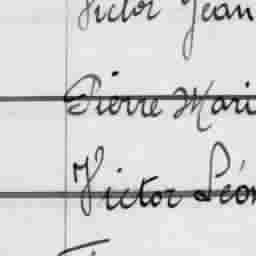 Victor Jean
Pierre Mari
Victor Léon